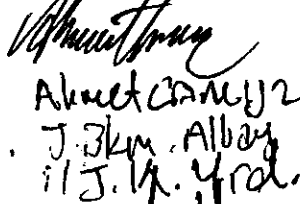 Ahmet CANSIZ
J. Bkm. Albay
İl J. K. Yrd.